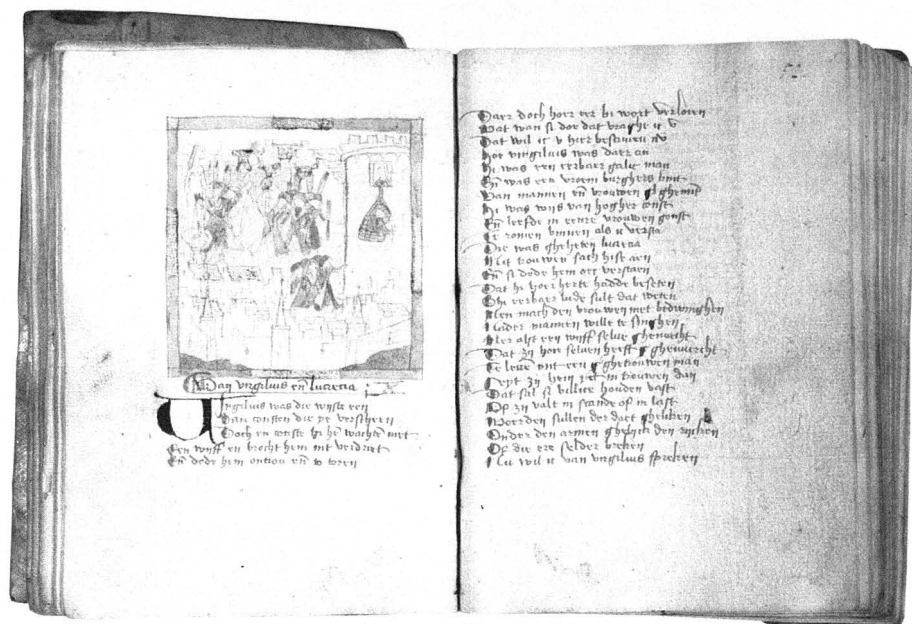 Van virgilius en lucrecia
Virgilius was die wijste een
Van consten die ye verscheen
Doch en conste hi hē wachtē niet
Een wijff en brocht hem int verdriet
En dede hem ontrou en
Daer doch hoer eer bi wort verloren
Wat wan si doe dat vraghe ic v
Dat wil ic v hier bescriuen nv
Her virgilius was daer an
Hi was een eerbaer man
En was een vroem burghers kint
Van mannen en vrouwen ghemint
Hi was wijs van hogher const
En leefde in eenre vrouwen gonst
Te romen binnen als ic versta
Die was gheheten lucrecia
Mit trouwen sach hise aen
En si dede hem oec verstaen
Dat hi hoer herte hadde beseten
Ghi eerbaer lude sult dat weten
Men mach den vrouwen niet bedwinghen
Mer alst een wijff selue ghenoecht
Dat zij hoer seluen heeft
Te leuē mit een ghetrouwen man
in trouwen dan
Dat sal si billic houden vast
Of zij valt in scande of in last
Woerden sullen der daet ghelijken
Onder den armen ghelijc den rijken
Of die ere selder breken
Nu wil ic van virgilius spreken